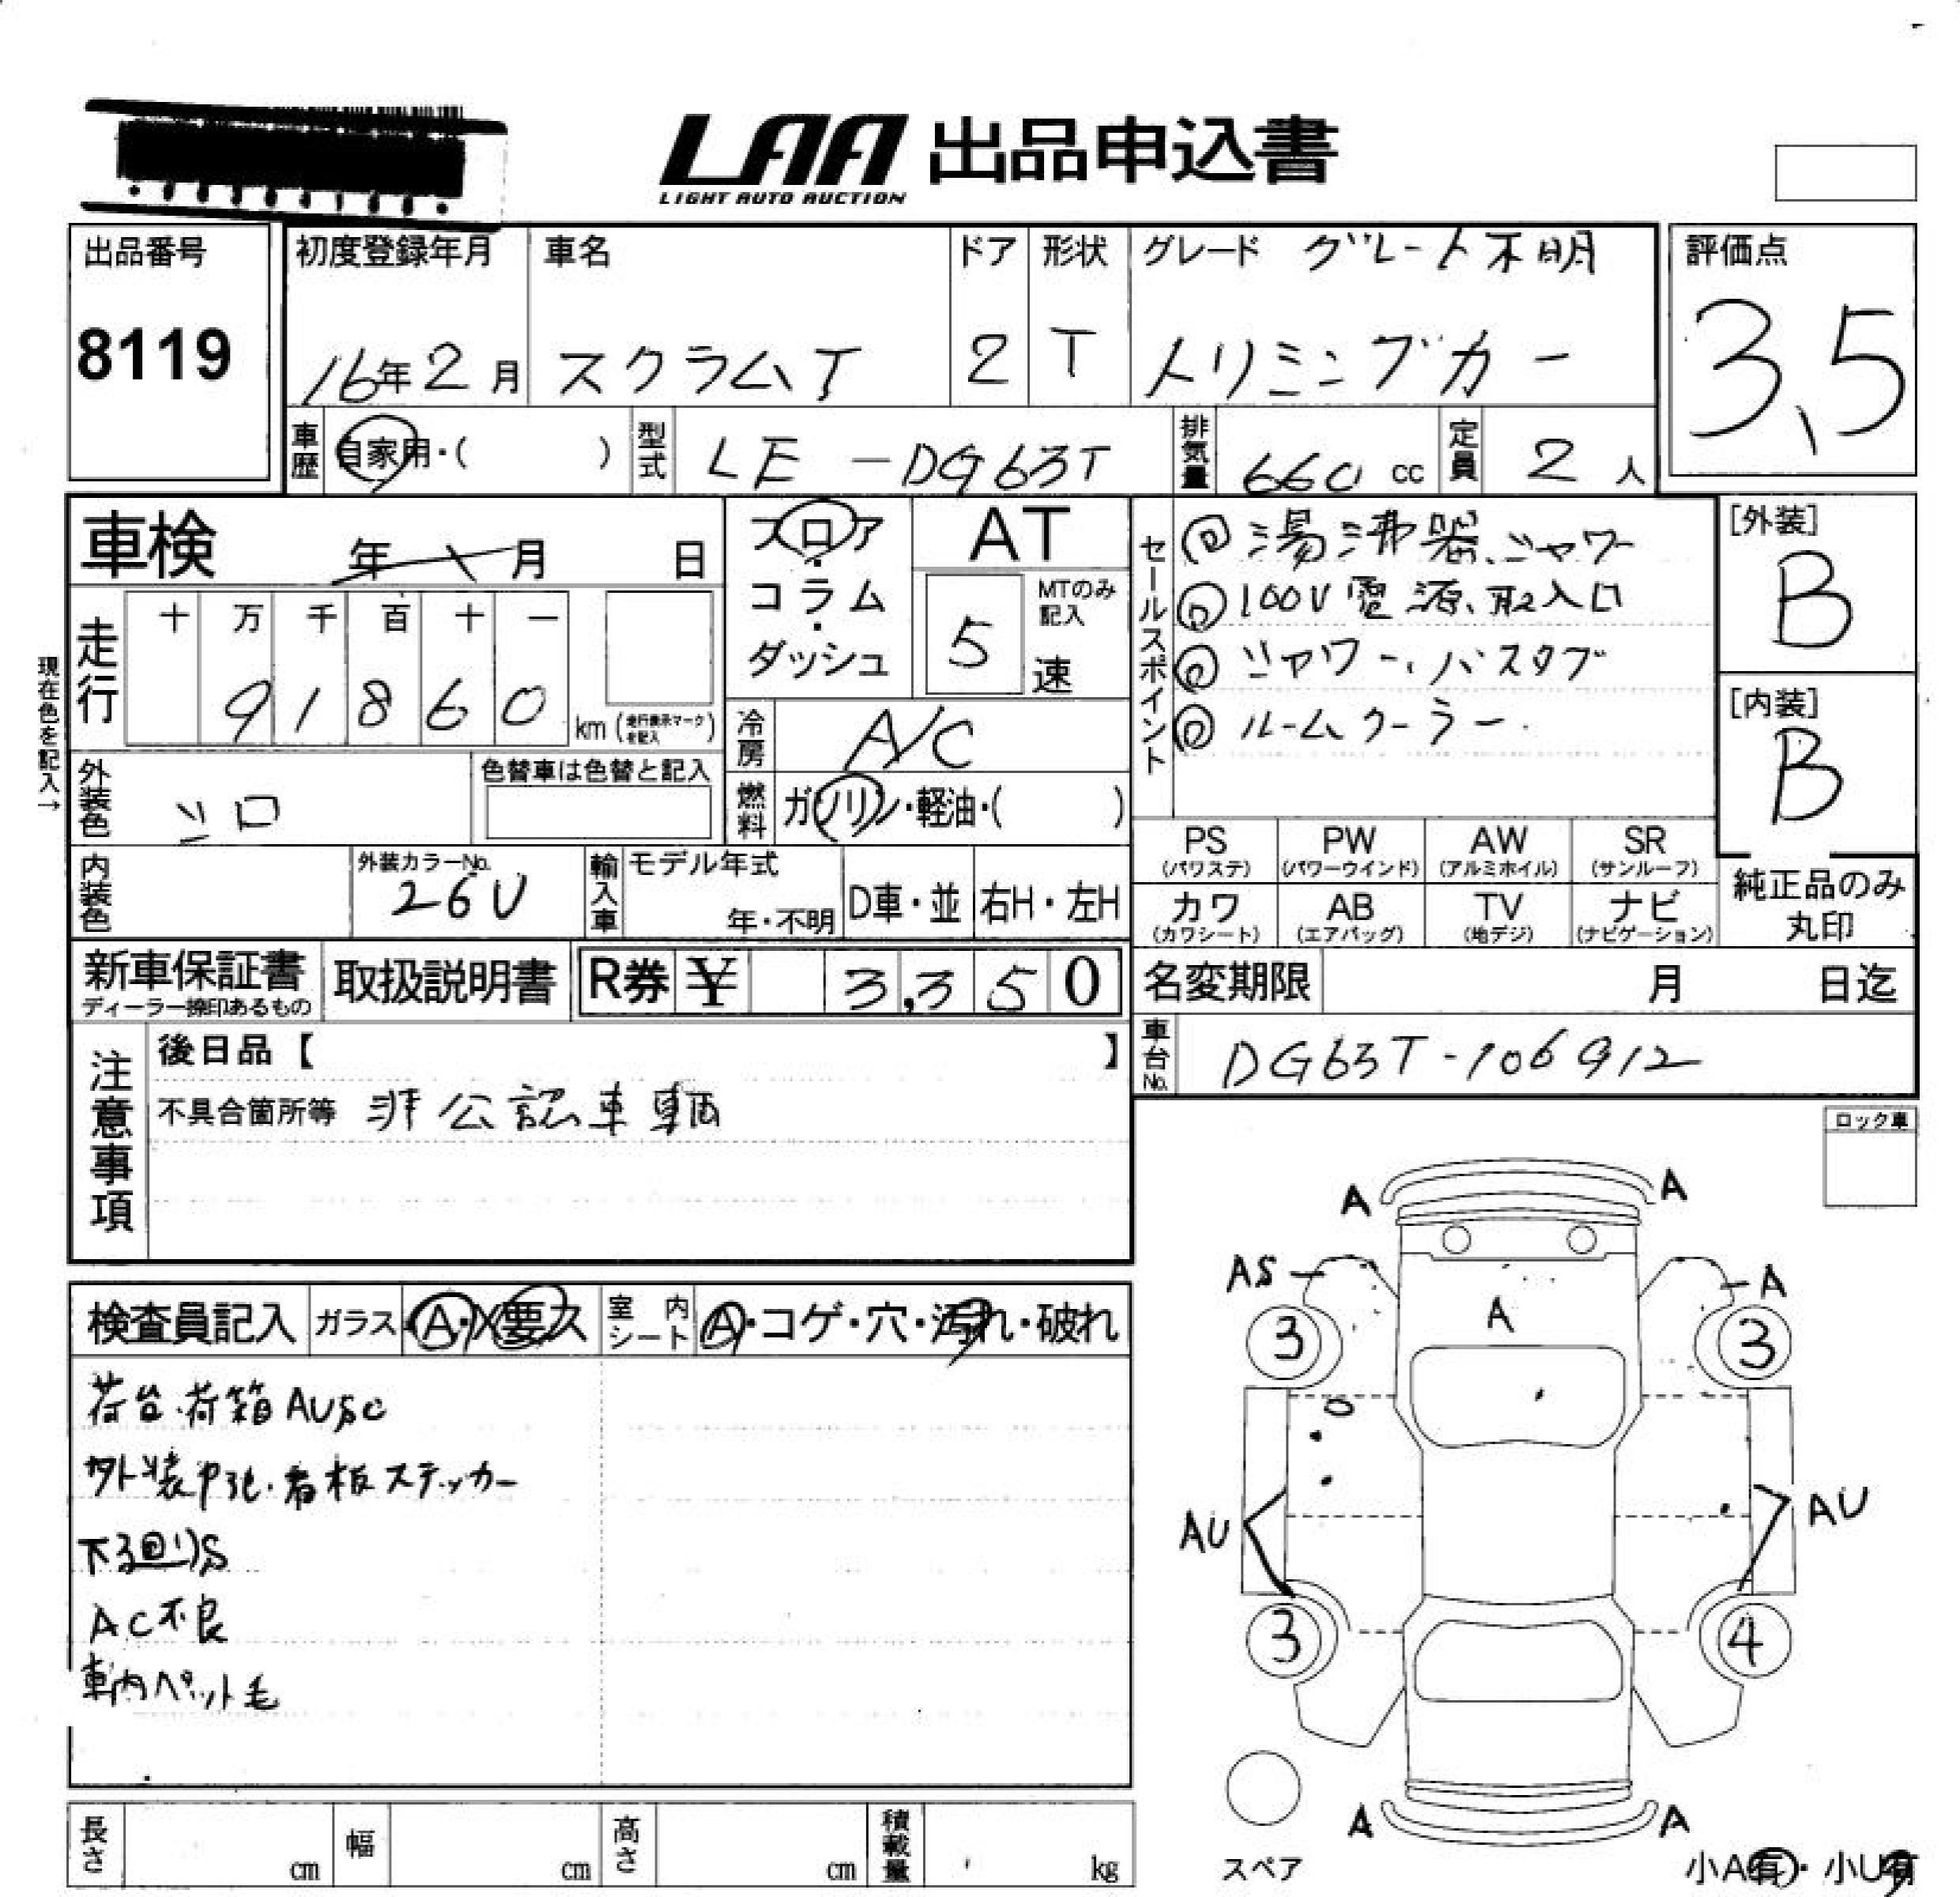 LAA 出品申込書
LIGHT AUTO AUCTION
出品番号
8119
初度登録年月
16年2月
車名
スクラムT
ドア
2
形状
T
グレード グレード不明
トリミングカー
評価点
3.5
車歴 自家用・( )
型式 LE-DG63T
排気量 660 cc
定員 2 人
車検 年 月 日
フロア・コラム・ダッシュ
AT
MTのみ記入
5 速
走行
十 万 千 百 十 一
9 1 8 6 0 km (走行表示マークを記入)
現在色を記入→
冷房 A/C
燃料 ガソリン・軽油・( )
外装色 シロ
色替車は色替と記入
内装色
外装カラーNo.
26U
輸入車 モデル年式
年・不明
D車・並
右H・左H
セールスポイント
@湯沸器、シャワー
@100V電源、取入口
@シャワー、バスタブ
@ルームクーラー
[外装]
B
[内装]
B
PS PW AW SR
(パワステ) (パワーウインド) (アルミホイル) (サンルーフ)
カワ AB TV ナビ
(カワシート) (エアバッグ) (地デジ) (ナビゲーション)
純正品のみ
丸印
新車保証書
ディーラー捺印あるもの
取扱説明書
R券 ¥ 3,350
名変期限 月 日迄
車台No. DG63T-106912
注意事項
後日品【 】
不具合箇所等 非公認車輌
ロック車
検査員記入 ガラス A・X要ス
室内シート A・コゲ・穴・汚れ・破れ
荷台・荷箱AUSC
外装P3ヒ・看板ステッカー
下回りS
AC不良
車内ペット毛
A A
AS A A
3 3
AU AU
3 4
A A
スペア
小A有・小U有
長さ cm
幅 cm
高さ cm
積載量 kg